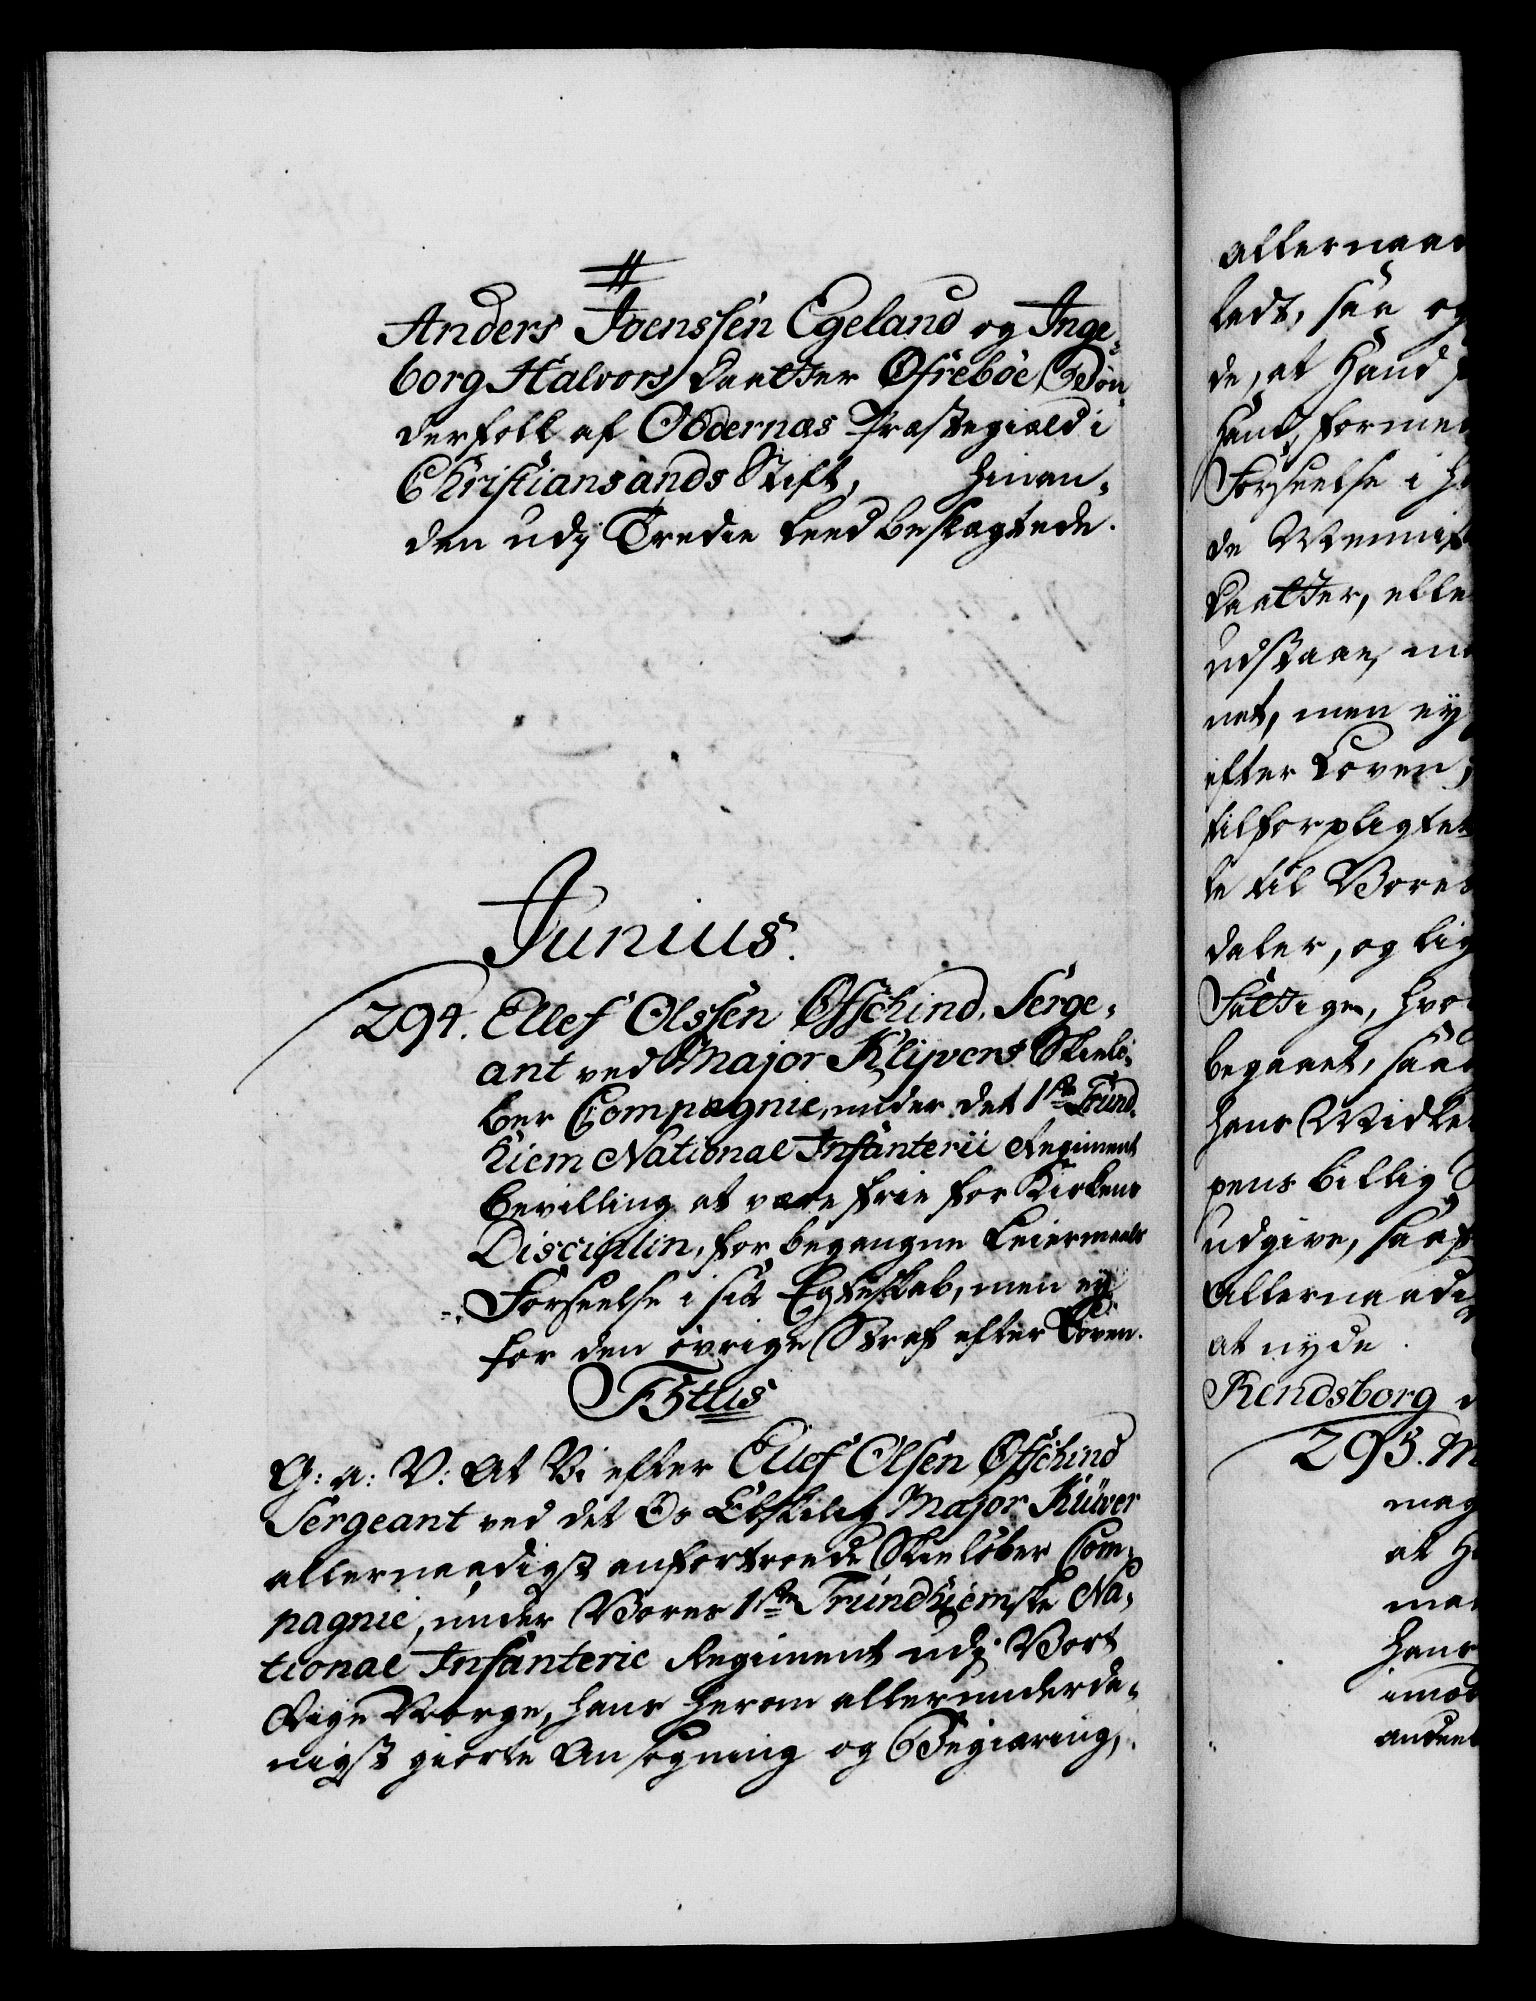 #
Anders Joenssen Egeland og Inge-
borg Halvors Daatter Øfrebøe, Bøn-
derfolk af Oddernæs Præstegield i
Christiansands Stift, hinan-
den udj Tredie Leed beslægtede.
Junius.
294. Ellef Olssen Øfschind, Serge-
ant ved Major Klüvers Skielø-
ber Compagnie, under det 1ste Trund-
hiem National Infanterii Regiment
bevilling at være frie for Kirkens
Disciplin, for begangne Leiermaals
Forseelse i sit Egteskab, men ey
for den øvrige Straf efter Loven.
F5tus
G: a: V: At Vi efter Ellef Olsen Øfschind
Sergeant ved det Os Elskelig Major Klüver
allernaadigst anfortroede Skieløber Com-
pagnie, under Vores 1ste Trundhiemske Na-
tional Infanterie Regiment udj Vort
Rige Norge, hans herom allerunderda-
nigst giorte Ansøgning og Begiæring,
allernaad
ladt, saa og
de, at Hand
hand, formed
Forseelse i H
de Mennisk
Daatter, elle
udstaae, m
net, men ey
efter Loven,
tilforpligtet
te til Vores
daler, og lig
Fattige, hvo
begaaet, saa
hans Midle
pens billig
udgive, saaf
Allernaadi
at nyde.
Rendsborg d
295. M
mag
at H
man
hans
imod
anden